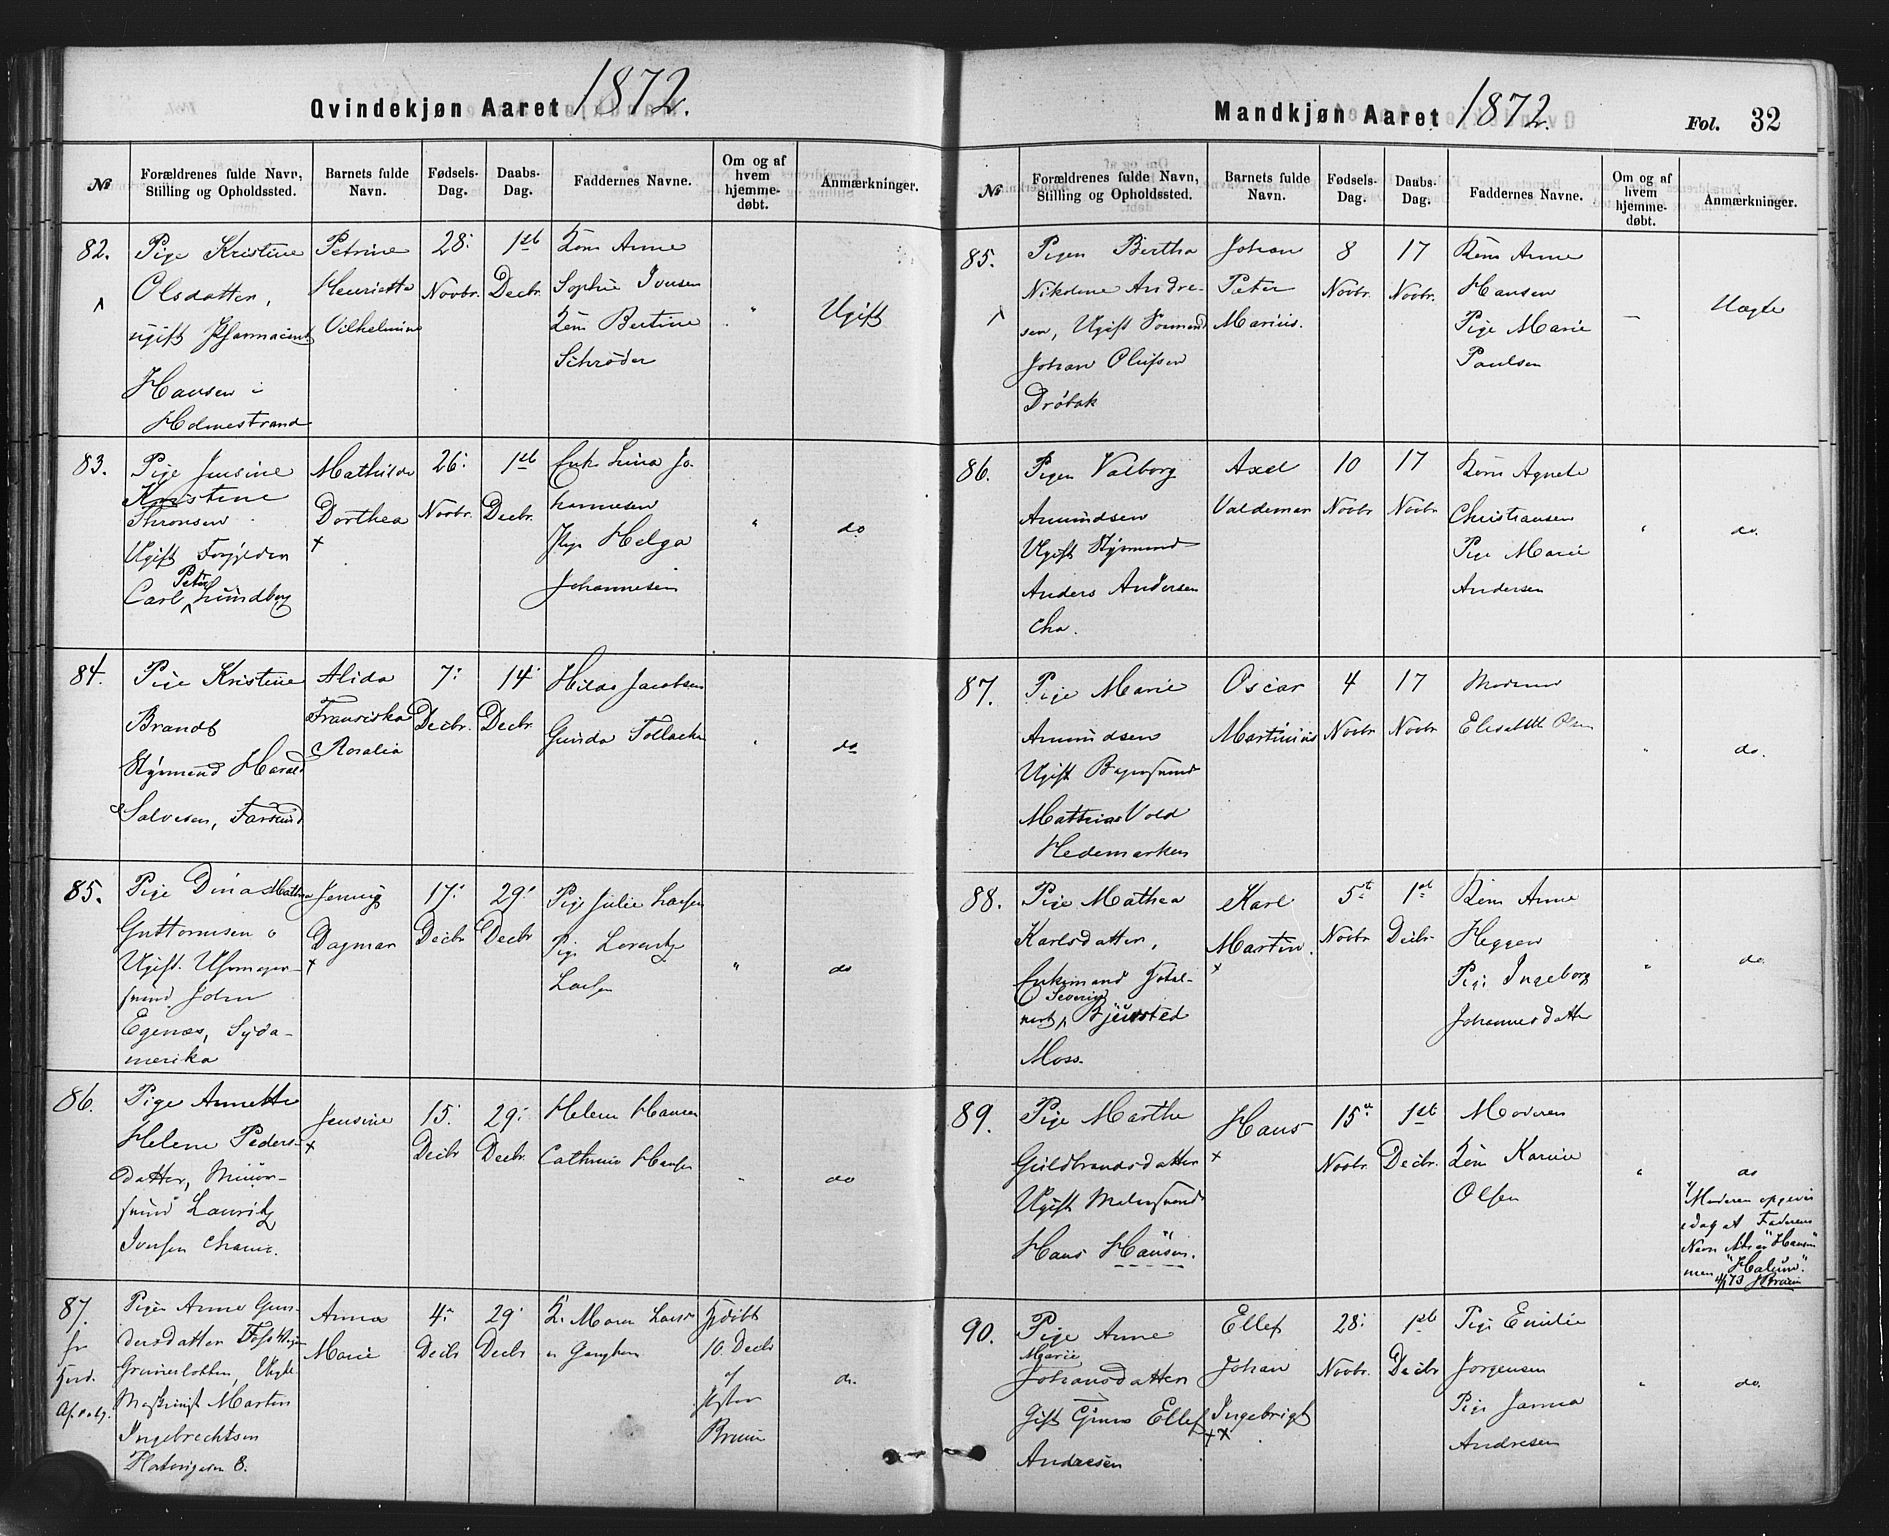 Qvindekjøn Aaret 1872.
№
Forældrenes fulde Navn,
Stilling og Opholdssted.
Barnets fulde
Navn.
Fødsels-
Dag.
Daabs-
Dag.
Faddernes Navne.
Om og af
hvem
hjemme-
døbt.
Anmærkninger.
82.
Pige Kristine
Olsdatter,
ugift Pharmaceut
Hansen i
Holmestrand
Petrine
Henriette
Vilhelmine
28:
Novbr.
1st
Decbr.
Kone Anne
Sophie Iversen
Kone Bertine
Schrøder
"
Ugift
83.
Pige Jensine
Kristine
Thronsen
Ugift Forgylder
Peter
Carl Lundberg
Mathilde
Dorthea
+
26:
Novbr.
1st
Decbr.
Enke Lina Jo-
hannesen
Pige Helga
Johannesen
"
do
84.
Pige Kristine
Brandt
Styrmand Harald
Salvesen, Farsund
Alida
Fransiska
Rosalia
7:
Decbr.
14
Decbr.
Hilda Jacobsen
Gunda
"
do
85.
Pige Dina Mathea
Guttormsen
Ugift. Uhrmager-
svend John
Egenæs, Syda-
merika
Jenny
Dagmar
+
17:
Decbr
29:
Decbr
Pige Julie Larsen
Pige Lorentze
Larsen
"
do
86.
Pige Annette
Helene Peders-
datter, Muur-
svend Lauritz
Iversen Chania.
Jensine
+
15:
Decbr
29:
Decbr.
Helene Hansen
Cathrine Hansen
"
do
87.
Pigen Anne Gun-
dersdatter
Grünerløkken, Uægte
Maskinist Martin
Ingebrechtsen
8.
Anna
Marie
4:
Decbr
29
Decbr
K. Maren Larsen
Hjdøbt
10. Decbr
af
Bruun
do.
Mandkjøn Aaret 1872.
Fol. 32
№
Forældrenes fulde Navn,
Stilling og Opholdssted.
Barnets fulde
Navn.
Fødsels-
Dag.
Daabs-
Dag.
Faddernes Navne.
Om og af
hvem
hjemme-
døbt.
Anmærkninger.
85.
Pigen Bertha
Nikoline Andre-
sen, Ugift Sømand
Johan Olufsen
Drøbak
Johan
Peter
Marius.
8
Novbr.
17
Novbr.
Kone Anne
Hansen
Pige Marie
Paulsen
—
Uægte
86.
Pigen Valborg
Amundsen
Ugift Styrmand
Anders Andersen
Cha.
Axel
Valdemar
10
Novbr
17
Novbr
Kone Agnete
Christiansen
Pige Marie
Andersen
"
do.
87.
Pige Marie
Amundsen
Ugift Bagersvend
Mathias Vold
Hedemarken
Oscar
Martinius
4
Novbr
17
Novbr
Moderen
Elisabeth Olsen
"
do.
88.
Pige Mathea
Karlsdatter,
Enkemand Hotel-
Severin
vert, Bjersted
Moss.
Karl
Martin.
+
5t
Novbr.
1st
Decbr.
Kone Anne
Heggen
Pige Ingeborg
Johannesdatter
"
do.
89.
Pige Marthe
Guldbrandsdatter
Ugift Malersvend
Hans Hansen.
Hans
+
15de
Novbr.
1st
Decbr.
Moderen
Kone Karine
Olsen
"
do
Moderen opgiver
idag at Faderens
Navn ikke er "Hansen"
men "Halum".
4/1 73 Bruun
90.
Pige Anne
Marie
Johansdatter
Gift Ellef
Andresen
Ellef
Johan
Ingebrigt
++
28:
Novbr.
1st
Decbr
Pige Emilie
Jørgensen
Pige Janna
Andresen
"
do.